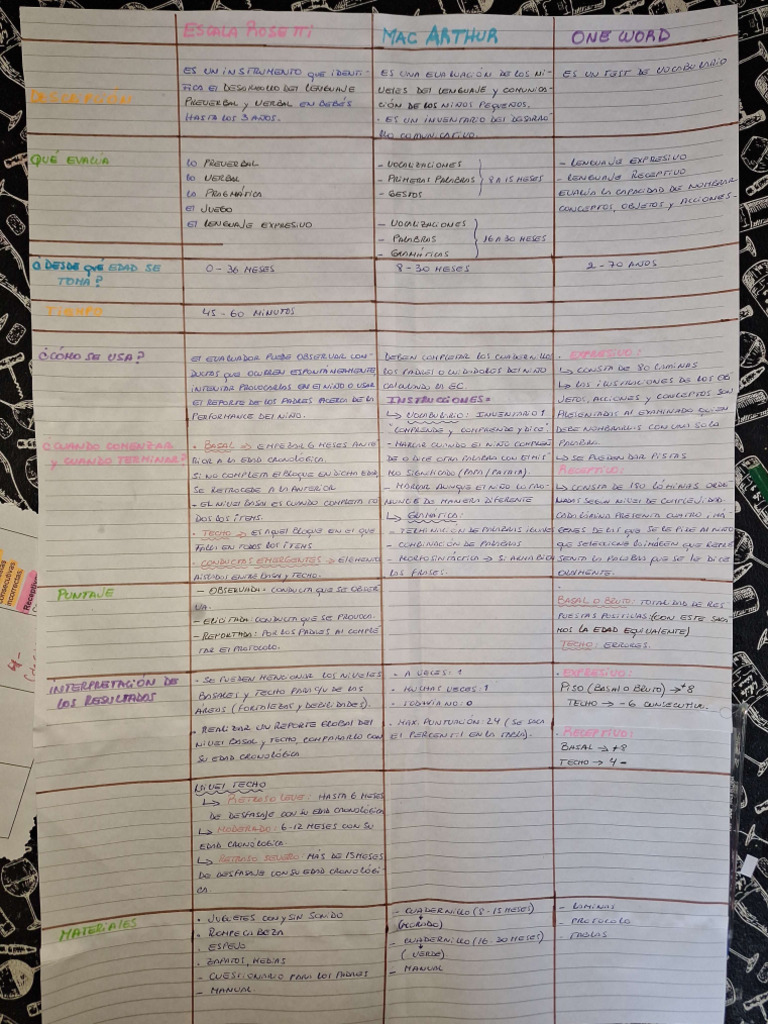 ESCALA ROSETTI
MAC ARTHUR
ONE WORD
DESCRIPCIÓN
ES UN INSTRUMENTO QUE IDENTI-
FICA EL DESARROLLO DEL LENGUAJE
PREVERBAL Y VERBAL EN BEBÉS
HASTA LOS 3 AÑOS.
ES UNA EVALUACIÓN DE LOS NI-
VELES DEL LENGUAJE Y COMUNICA-
CIÓN DE LOS NIÑOS PEQUEÑOS.
- ES UN INVENTARIO DEL DESARRO
LLO COMUNICATIVO.
ES UN TEST DE VOCABULARIO
QUÉ EVALÚA
LO PREVERBAL
LO VERBAL
LA PRAGMÁTICA
EL JUEGO
EL LENGUAJE EXPRESIVO
- VOCALIZACIONES
- PRIMERAS PALABRAS
- GESTOS
8 A 15 MESES
- VOCALIZACIONES
- PALABRAS
- GRAMÁTICAS
16 A 30 MESES
- LENGUAJE EXPRESIVO
- LENGUAJE RECEPTIVO
EVALÚA LA CAPACIDAD DE NOMBRAR
CONCEPTOS, OBJETOS Y ACCIONES-
¿DESDE QUÉ EDAD SE
TOMA?
0-36 MESES
8-30 MESES
2-70 AÑOS
TIEMPO
45-60 MINUTOS
¿CÓMO SE USA?
EL EVALUADOR PUEDE OBSERVAR CON-
DUCTAS QUE OCURREN ESPONTÁNEAMENTE
INTENTAR PROVOCARLAS EN EL NIÑO O USAR
EL REPORTE DE LOS PADRES ACERCA DE LA
PERFORMANCE DEL NIÑO.
DEBEN COMPLETAR LOS CUADERNILLOS
LOS PADRES O CUIDADORES DEL NIÑO
CALCULANDO LA EC.
INSTRUCCIONES=
↳ VOCABULARIO: INVENTARIO 1
"COMPRENDE Y COMPRENDE Y DICE".
- MARCAR CUANDO EL NIÑO COMPREN
DE O DICE OTRA PALABRA CON EL MIS
MO SIGNIFICADO (PAPA/PATATA).
- MARCAR AUNQUE EL NIÑO LO PRO-
NUNCIE DE MANERA DIFERENTE
↳ GRAMÁTICA:
- TERMINACIÓN DE PALABRAS
- COMBINACIÓN DE PALABRAS
- MORFOSINTÁCTICA → SI ARMA BIEN
LAS FRASES.
- EXPRESIVO:
↳ CONSTA DE 80 LÁMINAS
↳ LAS ILUSTRACIONES DE LOS OB
JETOS, ACCIONES Y CONCEPTOS SON
PRESENTADAS AL EXAMINADO QUIEN
DEBE NOMBRARLOS CON UNA SOLA
PALABRA.
↳ SE PUEDEN DAR PISTAS
RECEPTIVO:
↳ CONSTA DE 150 LÁMINAS ORDE
NADAS SEGÚN NIVEL DE COMPLEJIDAD.
CADA LÁMINA PRESENTA CUATRO IMÁ-
GENES DE LAS QUE SE LE PIDE AL NIÑO
QUE SELECCIONE LA IMAGEN QUE REPRE
SENTA LA PALABRA QUE SE LE DICE
ORALMENTE.
¿CUANDO COMENZAR
Y CUANDO TERMINAR?
- BASAL → EMPEZAR 6 MESES ANTE
RIOR A LA EDAD CRONOLÓGICA.
SI NO COMPLETA EL BLOQUE EN DICHA EDAD
SE RETROCEDE A LA ANTERIOR
- EL NIVEL BASAL ES CUANDO COMPLETA TO
DOS LOS ÍTEMS.
- TECHO → ES AQUEL BLOQUE EN EL QUE
FALLA EN TODOS LOS ÍTEMS
- CONDUCTAS EMERGENTES → ELEMENTOS
AISLADOS ENTRE BASAL Y TECHO.
PUNTAJE
- OBSERVADA: CONDUCTA QUE SE OBSER
VA.
- ELICITADA: CONDUCTA QUE SE PROVOCA.
- REPORTADA: POR LOS PADRES AL COMPLE
TAR EL PROTOCOLO.
BASAL O BRUTO: TOTALIDAD DE RES
PUESTAS POSITIVAS (CON ESTE SACA
MOS LA EDAD EQUIVALENTE)
TECHO: ERRORES.
INTERPRETACIÓN DE
LOS RESULTADOS
- SE PUEDEN MENCIONAR LOS NIVELES
BASALES Y TECHO PARA C/U DE LAS
ÁREAS (FORTALEZAS Y DEBILIDADES).
- REALIZAR UN REPORTE GLOBAL DEL
NIVEL BASAL Y TECHO, COMPARARLO CON
SU EDAD CRONOLÓGICA
- A VECES: 1
- MUCHAS VECES: 1
- TODAVÍA NO: 0
- MAX. PUNTUACIÓN: 24 (SE SACA
EL PERCENTIL EN LA TABLA).
- EXPRESIVO:
PISO (BASAL O BRUTO) → +8
TECHO → -6 CONSECUTIVA.
- RECEPTIVO:
BASAL → +8
TECHO → 4 -
NIVEL TECHO
↳ RETRASO LEVE: HASTA 6 MESES
DE DESFASAJE CON SU EDAD CRONOLÓGICA
↳ MODERADO: 6-12 MESES CON SU
EDAD CRONOLÓGICA
↳ RETRASO SEVERO: MÁS DE 15 MESES
DE DESFASAJE CON SU EDAD CRONOLÓGI
CA.
MATERIALES
- JUGUETES CON Y SIN SONIDO
- ROMPECABEZA
- ESPEJO
- ZAPATOS, MEDIAS
- CUESTIONARIO PARA LOS PADRES
- MANUAL.
- CUADERNILLO (8-15 MESES)
(MORADO)
- CUADERNILLO (16-30 MESES)
(VERDE)
- MANUAL
- LÁMINAS
- PROTOCOLO
- TABLAS
consecutivas
incorrectas.
Receptivo
4-